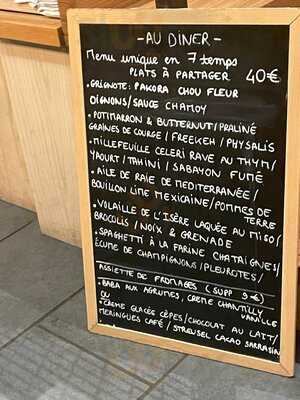 - AU DINER -
Menu unique en 7 temps
PLATS À PARTAGER 40€
• GRIGNOTE: PAKORA CHOU FLEUR
OIGNONS/SAUCE CHAMOY
• POTIMARRON & BUTTERNUT/PRALINÉ
GRAINES DE COURGE / FREEKEH / PHYSALIS
• MILLEFEUILLE CÉLERI RAVE AU THYM/
YAOURT / TAHINI / SABAYON FUMÉ
• AILE DE RAIE DE MEDITERRANÉE /
BOUILLON LIME MEXICAINE/POMMES DE
TERRE
• VOLAILLE DE L'ISÈRE LAQUÉE AU MISO/
BROCOLIS / NOIX & GRENADE
• SPAGHETTI À LA FARINE CHATAIGNES/
ÉCUME DE CHAMPIGNONS/PLEUROTES/
ASSIETTE DE FROMAGES (SUPP 9€)
• BABA AUX AGRUMES, CREME CHANTILLY
VANILLE
OU
• CRÈME GLACÉE CÈPES/CHOCOLAT AU LAIT/
MERINGUES CAFÉ / STREUSEL CACAO SARRASIN